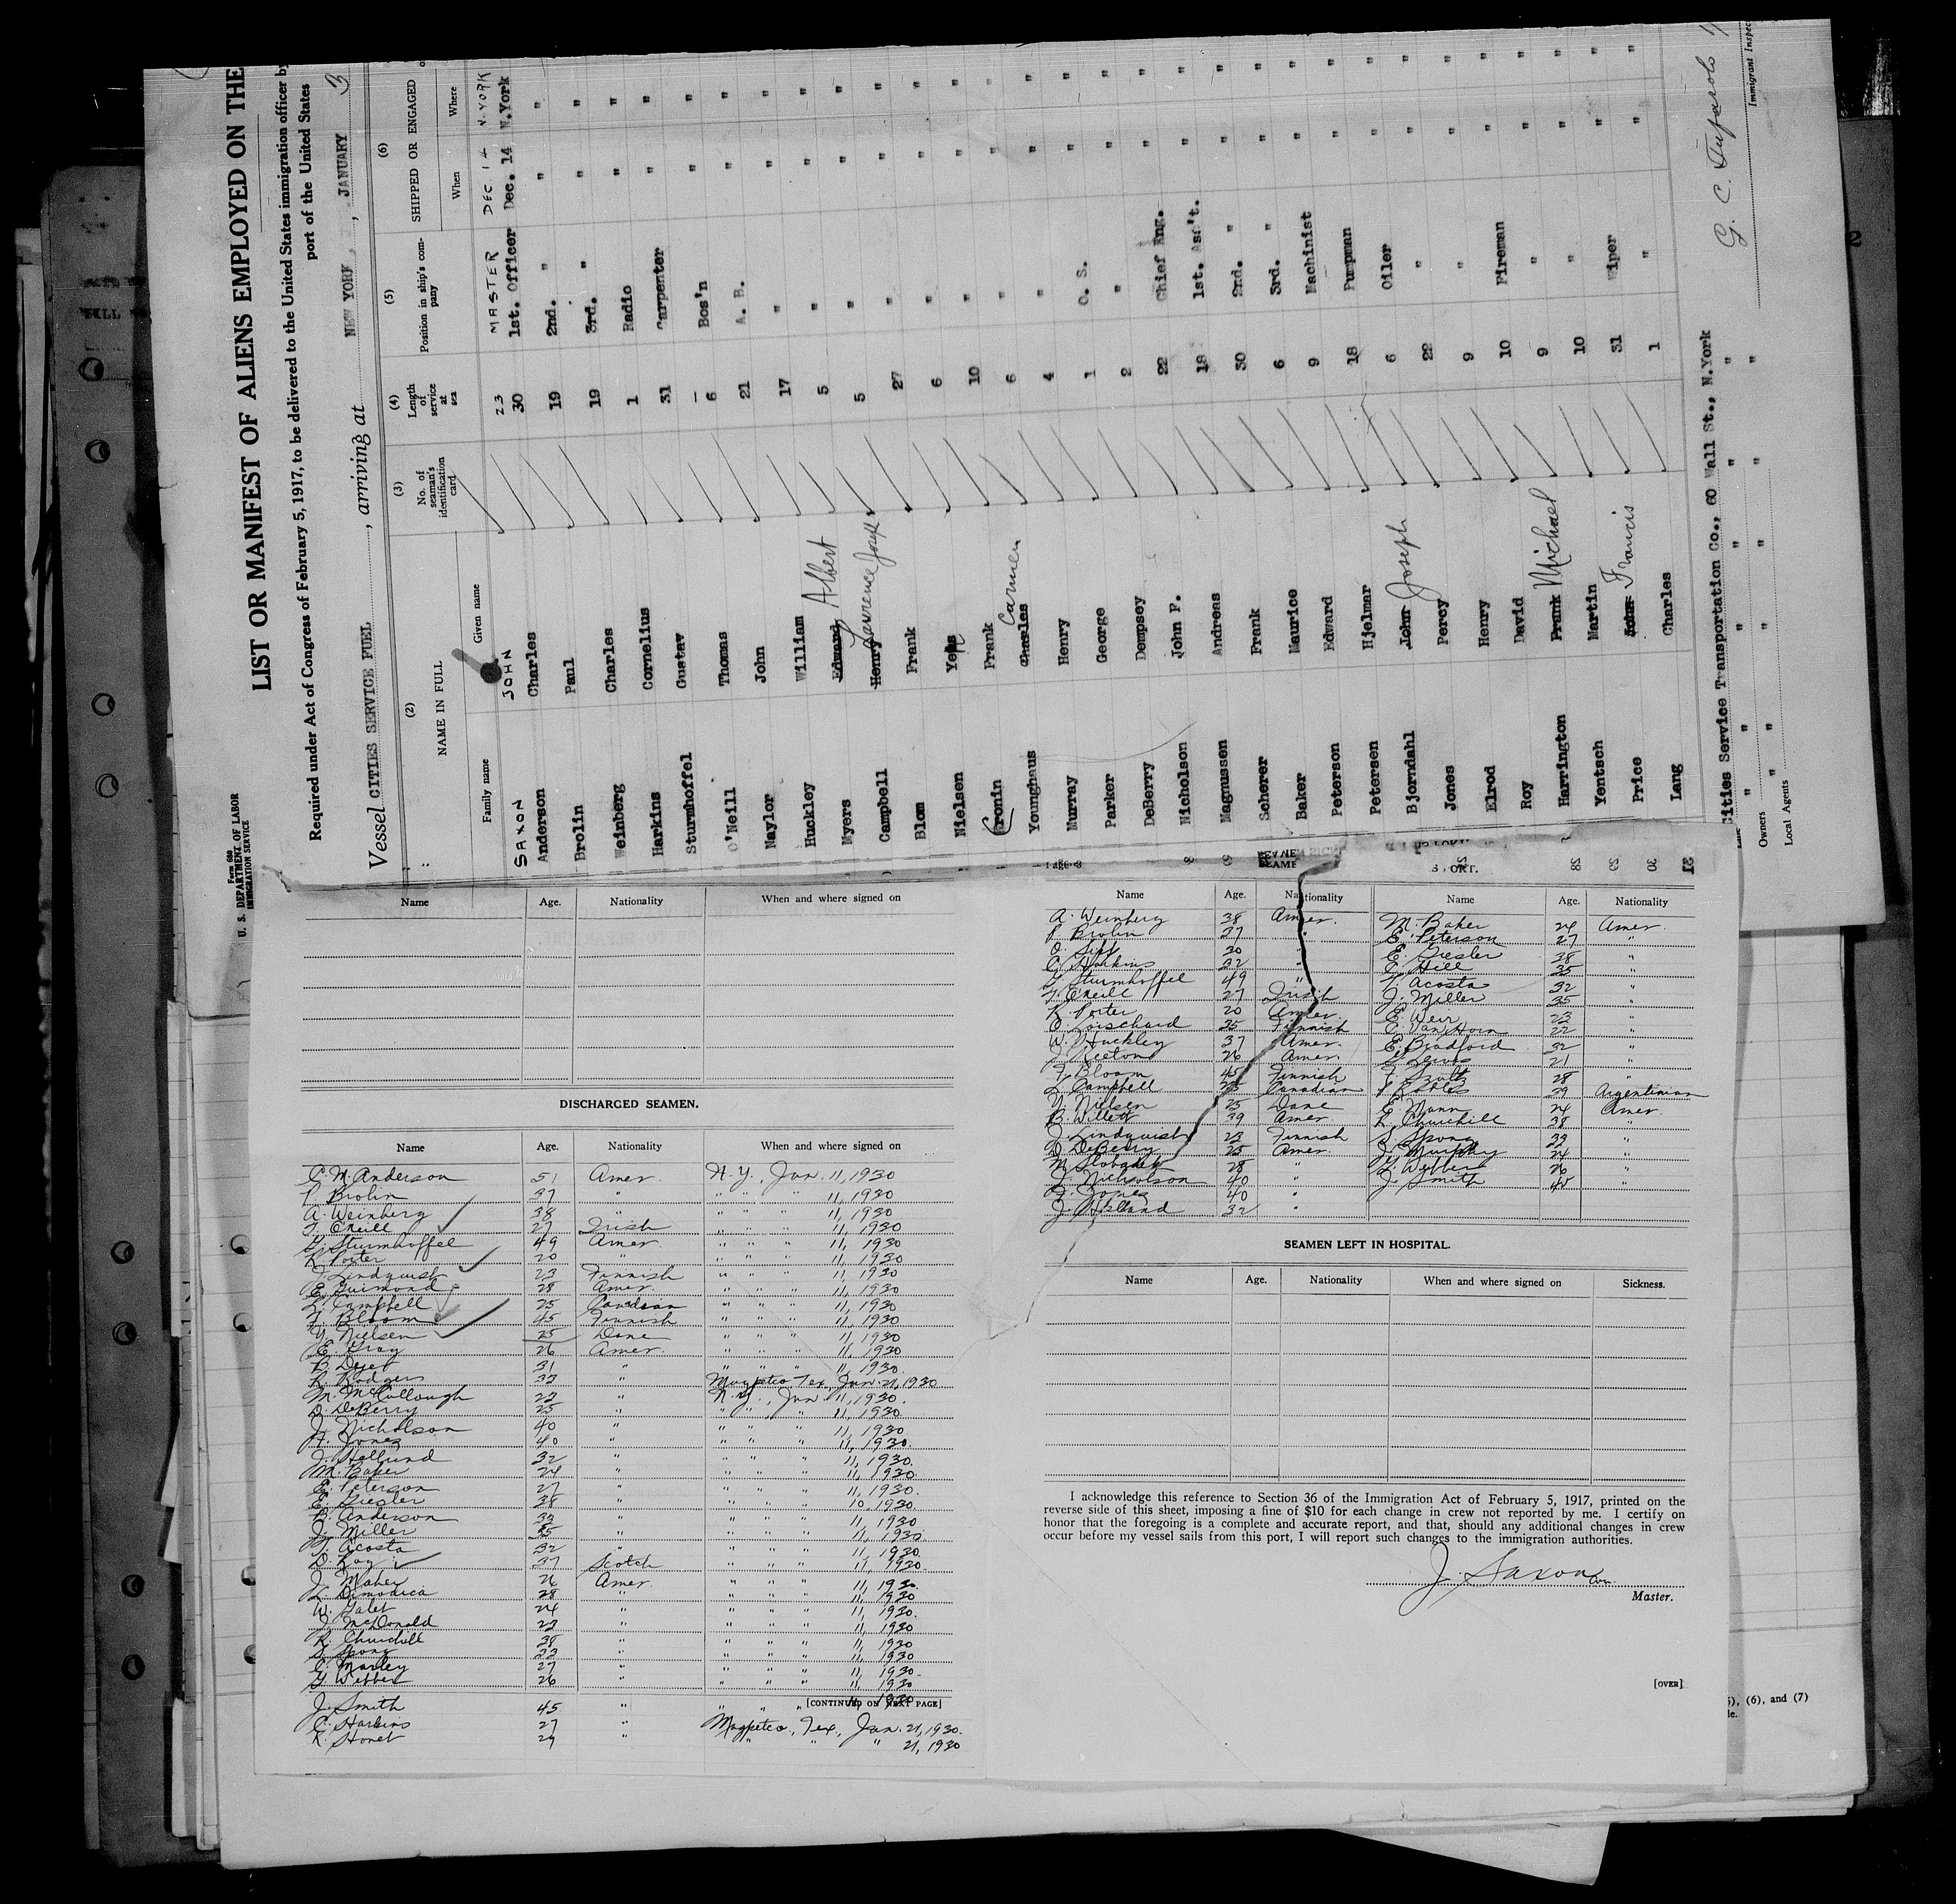 Form 680
U. S. DEPARTMENT OF LABOR
IMMIGRATION SERVICE
LIST OR MANIFEST OF ALIENS EMPLOYED ON THE
Required under Act of Congress of February 5, 1917, to be delivered to the United States immigration officer by
port of the United States
Vessel CITIES SERVICE FUEL, arriving at NEW YORK, JANUARY 3
(2) (3) (4) (5) (6)
NAME IN FULL No. of seaman's identification card Length of service at sea Position in ship's company SHIPPED OR ENGAGED
Family name Given name When Where
SAXON JOHN 23 MASTER DEC. 14 N.YORK
Anderson Charles 30 1st. Officer Dec. 14 N.York
Brolin Paul 19 2nd. " " "
Weinberg Charles 19 3rd. " " "
Harkins Cornelius 1 Radio " "
Sturmhoffel Gustav 31 Carpenter " "
O'Neill Thomas 6 Bos'n " "
Naylor John 21 A. B. " "
Huckley William 17 " " "
Myers Edward Albert 5 " " "
Campbell Henry Lawrence Joseph 5 " " "
Blom Frank 27 " " "
Nielsen 6 " " "
Cronin Frank 10 " " "
Younghaus Charles Carmen 6 " " "
Murray Henry 4 " " "
Parker George 1 O. S. " "
DeBerry Dempsey 2 " " "
Nicholson John F. 22 Chief Eng. " "
Magnussen Andreas 18 1st. Ass't. " "
Scherer Frank 30 2nd. " " "
Baker Maurice 6 3rd. " " "
Peterson Edward 9 Machinist " "
Petersen Hjelmar 18 Pumpman " "
Bjorndahl John Joseph 6 Oiler " "
Jones Percy 22 " " "
Elrod Henry 9 " " "
Roy David 10 Fireman " "
Harrington Frank Michael 9 " " "
Yentsch Martin 10 " " "
Price John Francis 31 Wiper " "
Lang Charles 1 " " "
Cities Service Transportation Co., 60 Wall St., N.York
Owners " " " " " "
Local Agents " " " " " "
Immigrant Inspec
Name Age. Nationality When and where signed on
DISCHARGED SEAMEN.
Name Age. Nationality When and where signed on
C. M. Anderson 51 Amer. N.Y., Jan. 11, 1930
P. Brolin 37 " " " " 11, 1930
A. Weinberg 38 " " " " 11, 1930
T. O'Neill 27 Irish " " " 11, 1930
G. Sturmhoffel 49 Amer. " " " 11, 1930
R. Porter 20 " " " " 11, 1930
J. Lindquist 23 Finnish " " " 11, 1930
E. Guimond 28 Amer. " " " 11, 1930
L. Campbell 25 Canadian " " " 11, 1930
F. Bloom 45 Finnish " " " 11, 1930
Y. Nielsen 25 Dane " " " 11, 1930
E. Gray 26 Amer. " " " 11, 1930
B. 31 " " " " 11, 1930
R. Rodgers 33 " Magpetco Tex., Jan. 21, 1930
M. McCullough 22 " N.Y., Jan. 11, 1930.
D. DeBerry 25 " " " " 11, 1930.
J. Nicholson 40 " " " " 11, 1930
F. Jones 40 " " " " 11, 1930.
J. Hellund 32 " " " " 11, 1930.
M. Baker 24 " " " " 11, 1930
E. Peterson 27 " " " " 11, 1930.
E. Giesler 38 " " " " 10, 1930
B. Anderson 33 " " " " 11, 1930
J. Miller 35 " " " " 11, 1930.
T. Acosta 32 " " " " 11, 1930.
D. Roy 37 Scotch " " " 11, 1930.
J. Maher 26 Amer. " " " 11, 1930.
L. Dimodica 28 " " " " 11, 1930
W. 24 " " " " 11, 1930.
J. McDonald 23 " " " " 11, 1930
R. Churchill 38 " " " " 11, 1930
S. Spong 33 " " " " 11, 1930
C. Manley 27 " " " " 11, 1930.
G. Webber 26 " " " " 11, 1930
J. Smith 45 " " " " 11, 1930
[CONTINUED ON NEXT PAGE]
C. Harkins 27 " Magpetco, Tex., Jan. 21, 1930.
R. 29 " " " " 21, 1930
Name Age. Nationality Name Age. Nationality
A. Weinberg 38 Amer. M. Baker 24 Amer.
P. Brolin 37 " E. Peterson 27 "
O. 30 " E. Giesler 38 "
C. Harkins 32 " C. Hill 35 "
G. Sturmhoffel 49 " T. Acosta 32 "
T. O'Neill 27 Irish J. Miller 35 "
R. Porter 20 Amer. E. Weir 23 "
O. 35 Finnish C. Van Horn 22 "
W. Huckley 37 Amer. E. Bradford 32 "
J. Keeton 26 Amer. G. Lewis 21 "
F. Bloom 45 Finnish F. 28 "
L. Campbell 25 Canadian 29 Argentinian
Y. Nielsen 25 Dane E. Mann 24 Amer.
B. Willett 39 Amer. R. Churchill 38 "
J. Lindquist 23 Finnish S. Spong 33 "
D. DeBerry 25 Amer. J. Murphy 24 "
M. 28 " G. Webber 26 "
J. Nicholson 40 " J. Smith 45 "
F. Jones 40 "
J. Hellund 32 "
SEAMEN LEFT IN HOSPITAL.
Name Age. Nationality When and where signed on Sickness.
I acknowledge this reference to Section 36 of the Immigration Act of February 5, 1917, printed on the
reverse side of this sheet, imposing a fine of $10 for each change in crew not reported by me. I certify on
honor that the foregoing is a complete and accurate report, and that, should any additional changes in crew
occur before my vessel sails from this port, I will report such changes to the immigration authorities.
J. Saxon
Master.
[OVER]
5), (6), and (7)